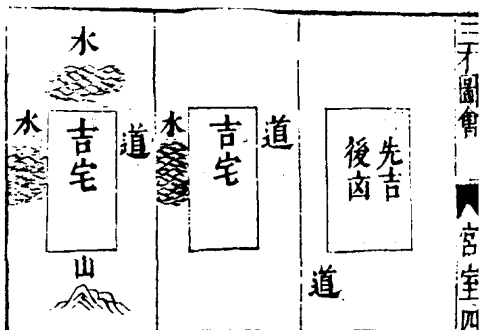 三才圖會
宮室四
先吉
後凶
道
道
吉宅
水
道
水
吉宅
水
山